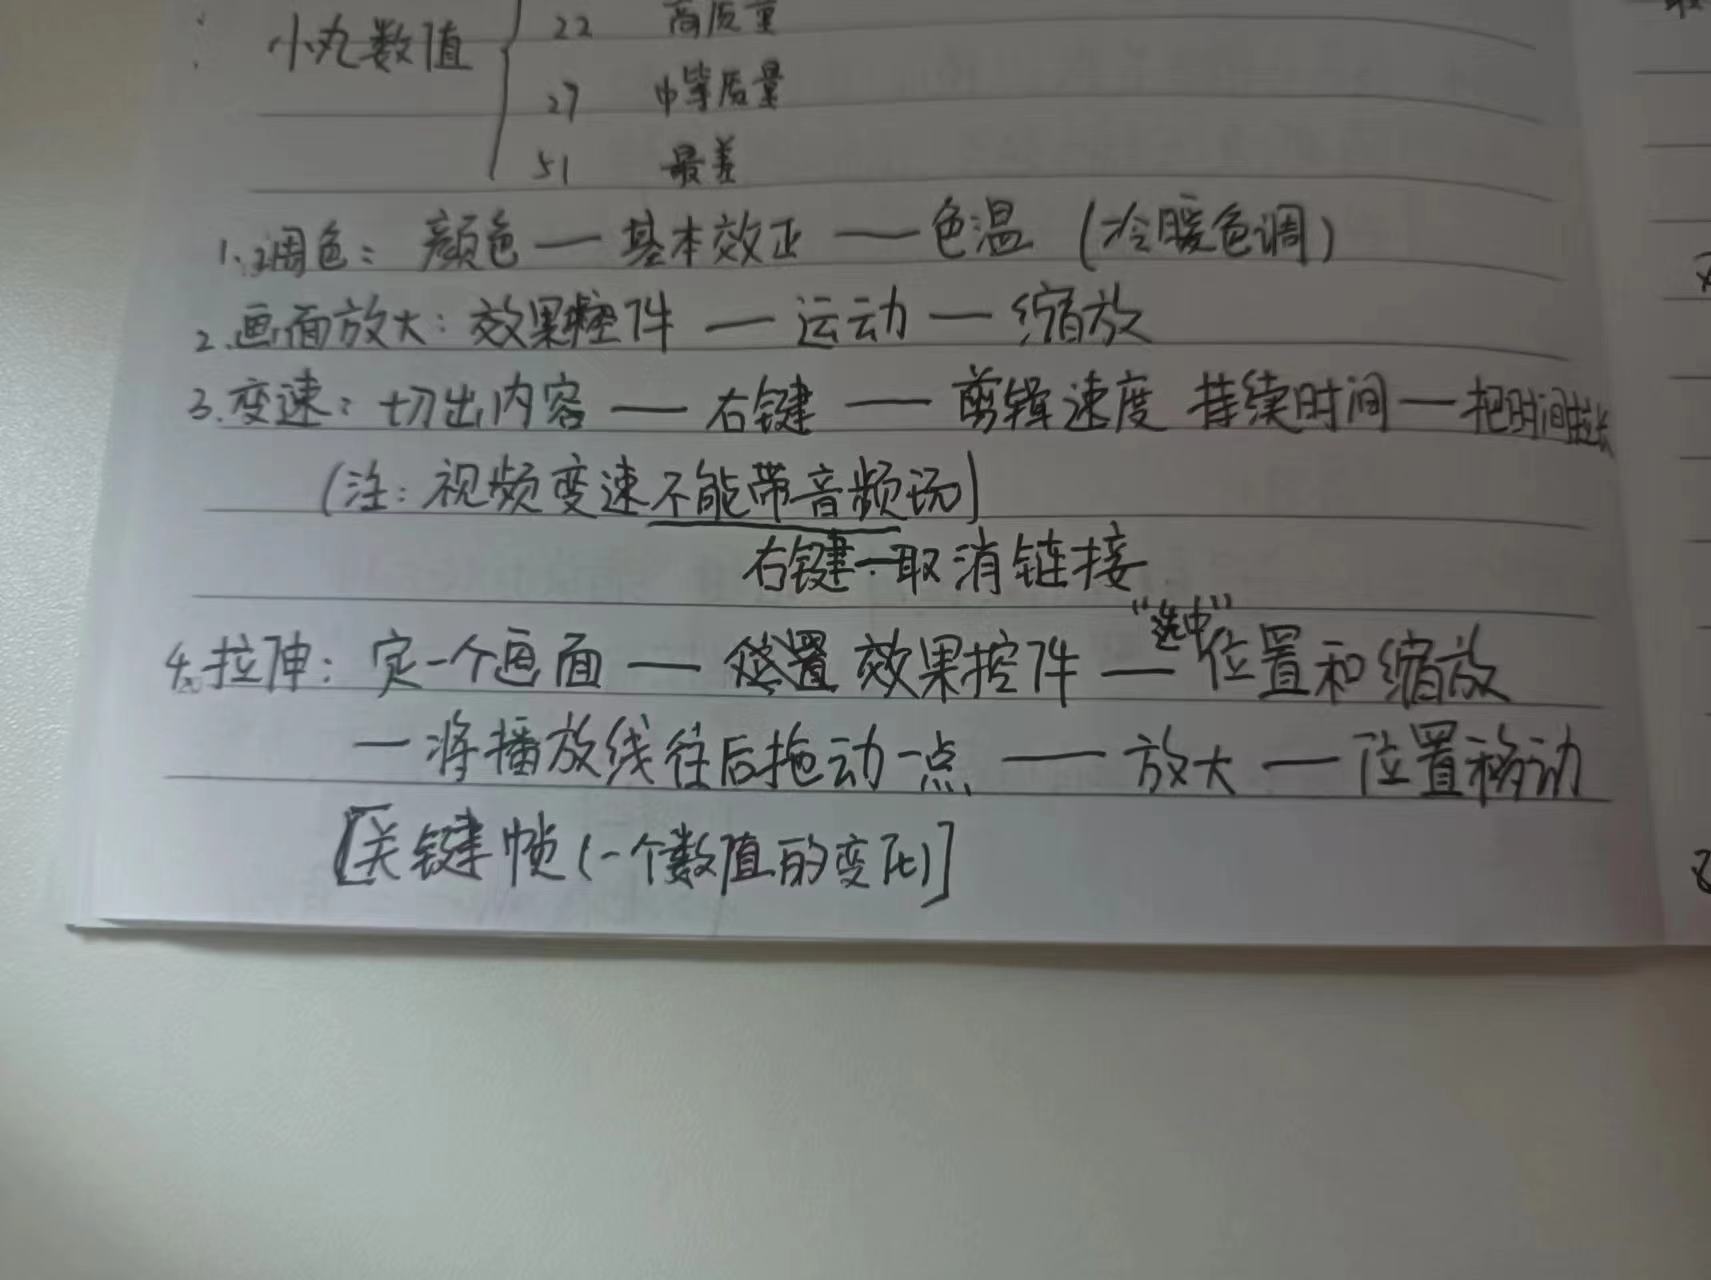 小丸数值 22 高质量
27 中等质量
51 最差
1.调色：颜色—基本效正—色温（冷暖色调）
2.画面放大：效果控件—运动—缩放
3.变速：切出内容—右键—剪辑速度 持续时间—把时间拉长
（注：视频变速不能带音频玩）
右键—取消链接
"选中"
4.拉伸：定一个画面—效果控件—位置和缩放
—将播放线往后拖动一点—放大—位置移动
[关键帧（一个数值的变化）]